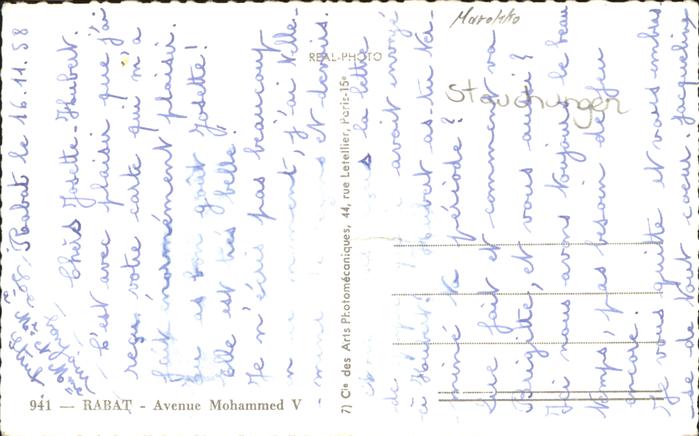 Rabat le 16.11.58
Chers Josette-Hubert.
C'est avec plaisir que j'ai
reçu votre carte qui m'a
fait énormément plaisir.
Tu as bon goût Josette!
Elle est très belle.
Je n'écris pas beaucoup
en ce moment, j'ai
et demie.
la lettre
avait envoyé
à Hubert. Hubert as-tu ter-
miné ta période?
Que fait et comment va
Brigitte, et vous aussi?
Ici nous avons toujours le beau
temps, pas besoin de feu
encore.
Je vous quitte et vous embras-
se de tout coeur, Jacqueline
Marokko
Stauchungen
REAL-PHOTO
7) Cie des Arts Photomécaniques, 44, rue Letellier, Paris-15e
941 — RABAT - Avenue Mohammed V